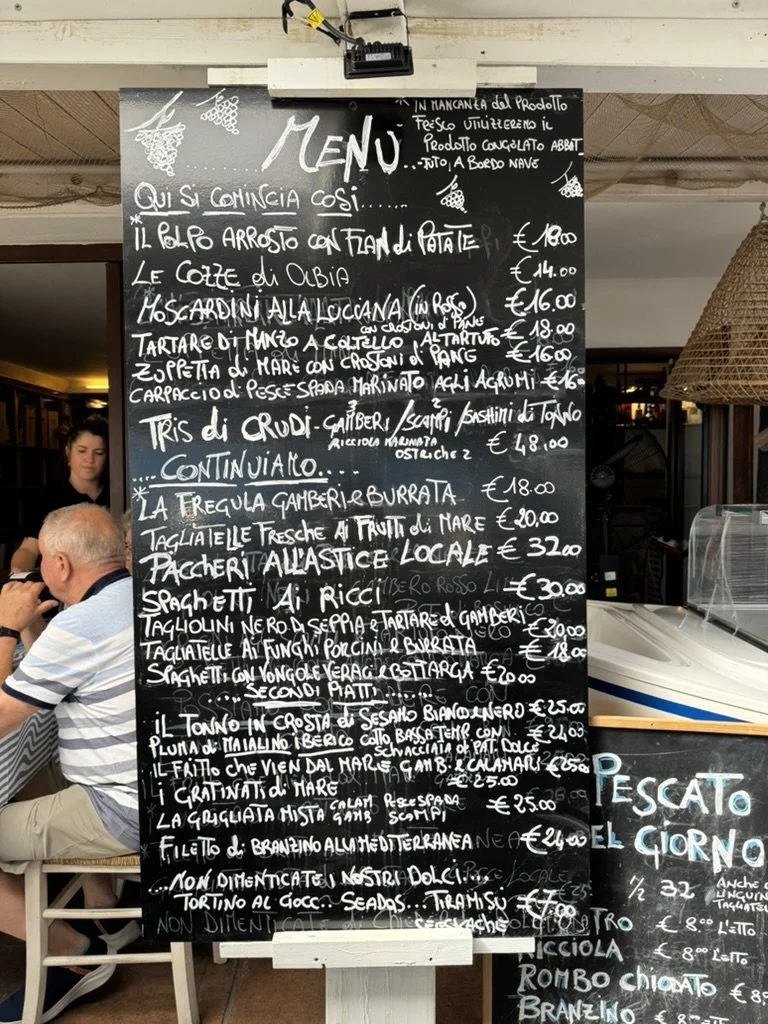 MENU
* IN MANCANZA del PRODOTTO
FRESCO UTILIZZEREMO il
PRODOTTO CONGELATO ABBAT
-TUTO, A BORDO NAVE
QUI SI COMINCIA COSI.......
* IL POLPO ARROSTO CON FLAN di PATATE €18.00
LE COZZE di OLBIA €14.00
MOSCARDINI ALLA LUCIANA (IN ROSSO) €16.00
CON CROSTONI di PANE
TARTARE DI MANZO A COLTELLO, AL TARTUFO €18.00
ZUPPETTA di MARE CON CROSTONI di PANE €16.00
CARPACCIO di PESCE SPADA MARINATO AGLI AGRUMI €16.00
TRIS di CRUDI - GAMBERI 3 / SCAMPI 2 / SASHIMI di TONNO
RICCIOLA MARINATA
OSTRICHE 2 €48,00
....CONTINUIAMO....
* LA FREGULA GAMBERI e BURRATA €18.00
TAGLIATELLE FRESCHE AI FRUTTI di MARE €20,00
PACCHERI ALL'ASTICE LOCALE €32,00
SPAGHETTI AI RICCI €30,00
TAGLIOLINI NERO DI SEPPIA e TARTARE di GAMBERI €20,00
TAGLIATELLE AI FUNGHI PORCINI e BURRATA €18.00
SPAGHETTI CON VONGOLE VERACI e BOTTARGA €20.00
.....SECONDI PIATTI.......
IL TONNO IN CROSTA di SESAMO BIANCO e NERO €25.00
PLUMA di MAIALINO IBERICO COTTO BASSA TEMP CON €24,00
SCHIACCIATA di PAT. DOLCE
IL FRITTO CHE VIEN DAL MARE GAMB. e CALAMARI €25,00
I GRATINATI di MARE €25.00
LA GRIGLIATA MISTA CALAM PESCE SPADA €25.00
GAMB SCAMPI
FILETTO di BRANZINO ALLA MEDITERRANEA €24,00
...NON DIMENTICATE I NOSTRI DOLCI....
TORTINO AL CIOCC... SEADAS... TIRAMISU €7.00
NON DIMENTICATE di
PESCATO
EL GIORNO
1/2 32 ANCHE
LINGUIN
TAGLIATEL
TRO € 8.00 L'ETTO
RICCIOLA € 8.00 L'ETTO
ROMBO CHIODATO € 8
BRANZINO € 8